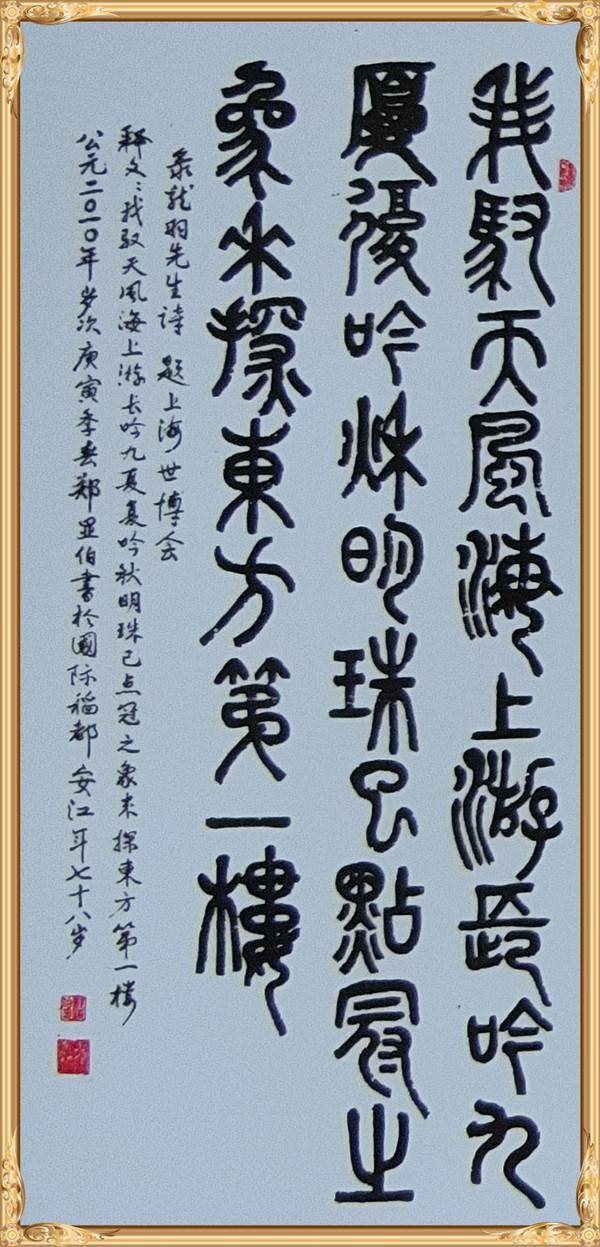 我馭天風海上游長吟九
夏復吟秋明珠已點冠之
象來探東方第一樓
录龙羽先生詩 题上海世博会
释文：我驭天风海上游长吟九夏复吟秋明珠已点冠之象来探東方第一楼
公元二〇一〇年岁次庚寅季春郑显伯書於國际稻都安江年七十八岁